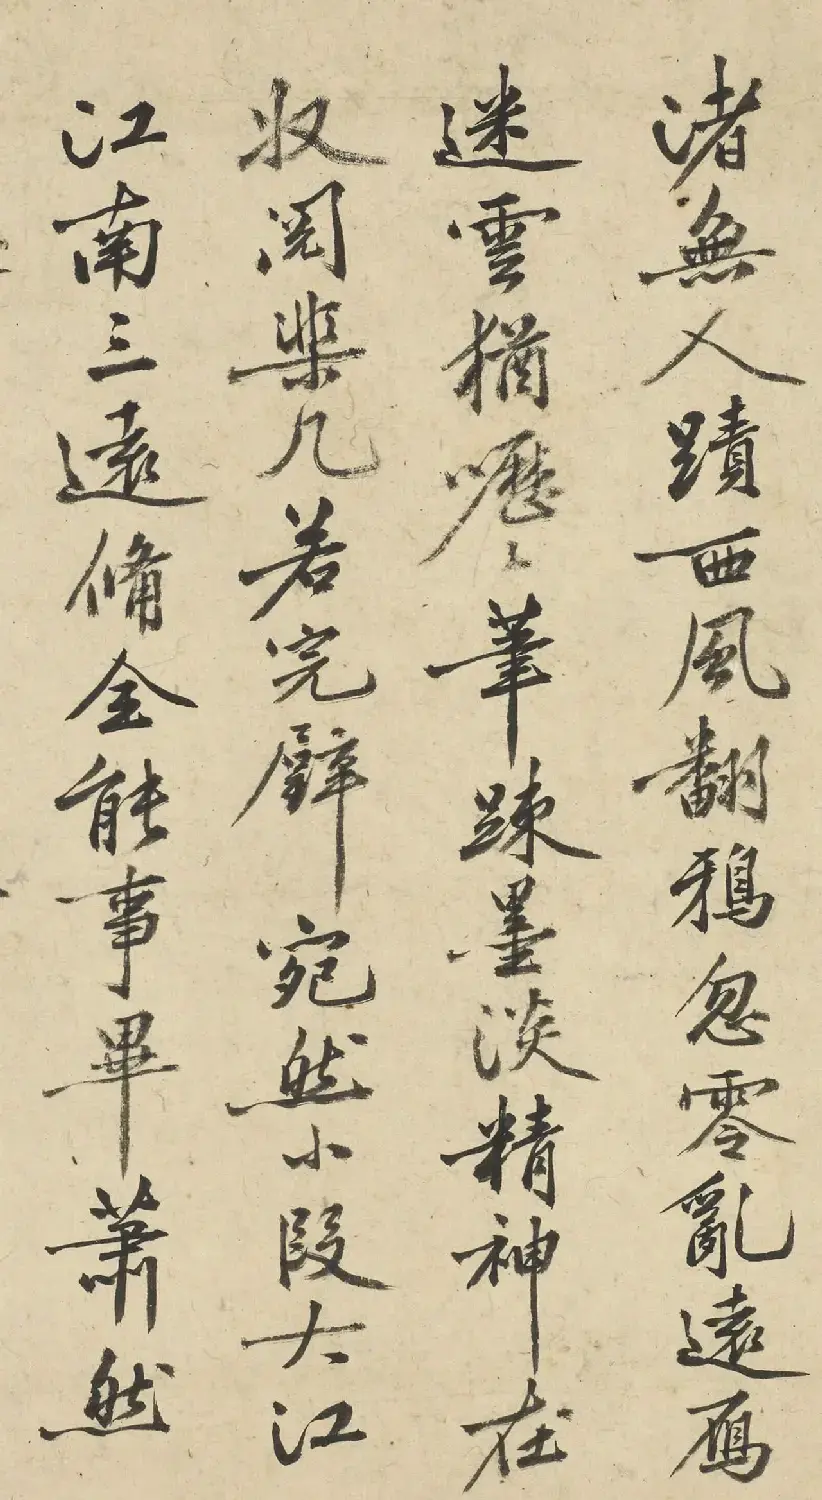 渚無人蹟西風翻鵶忽零亂遠雁
迷雲猶嚦〻筆踈墨淡精神在
收閲棐几若完璧宛然小段大江
江南三遠備全能事畢蕭然